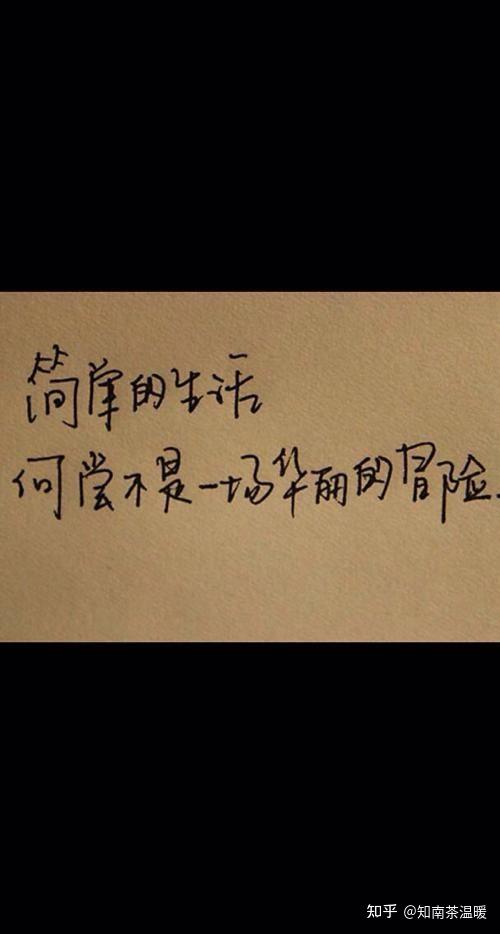 简单的生活
何尝不是一场华丽的冒险.
知乎 @知南茶温暖